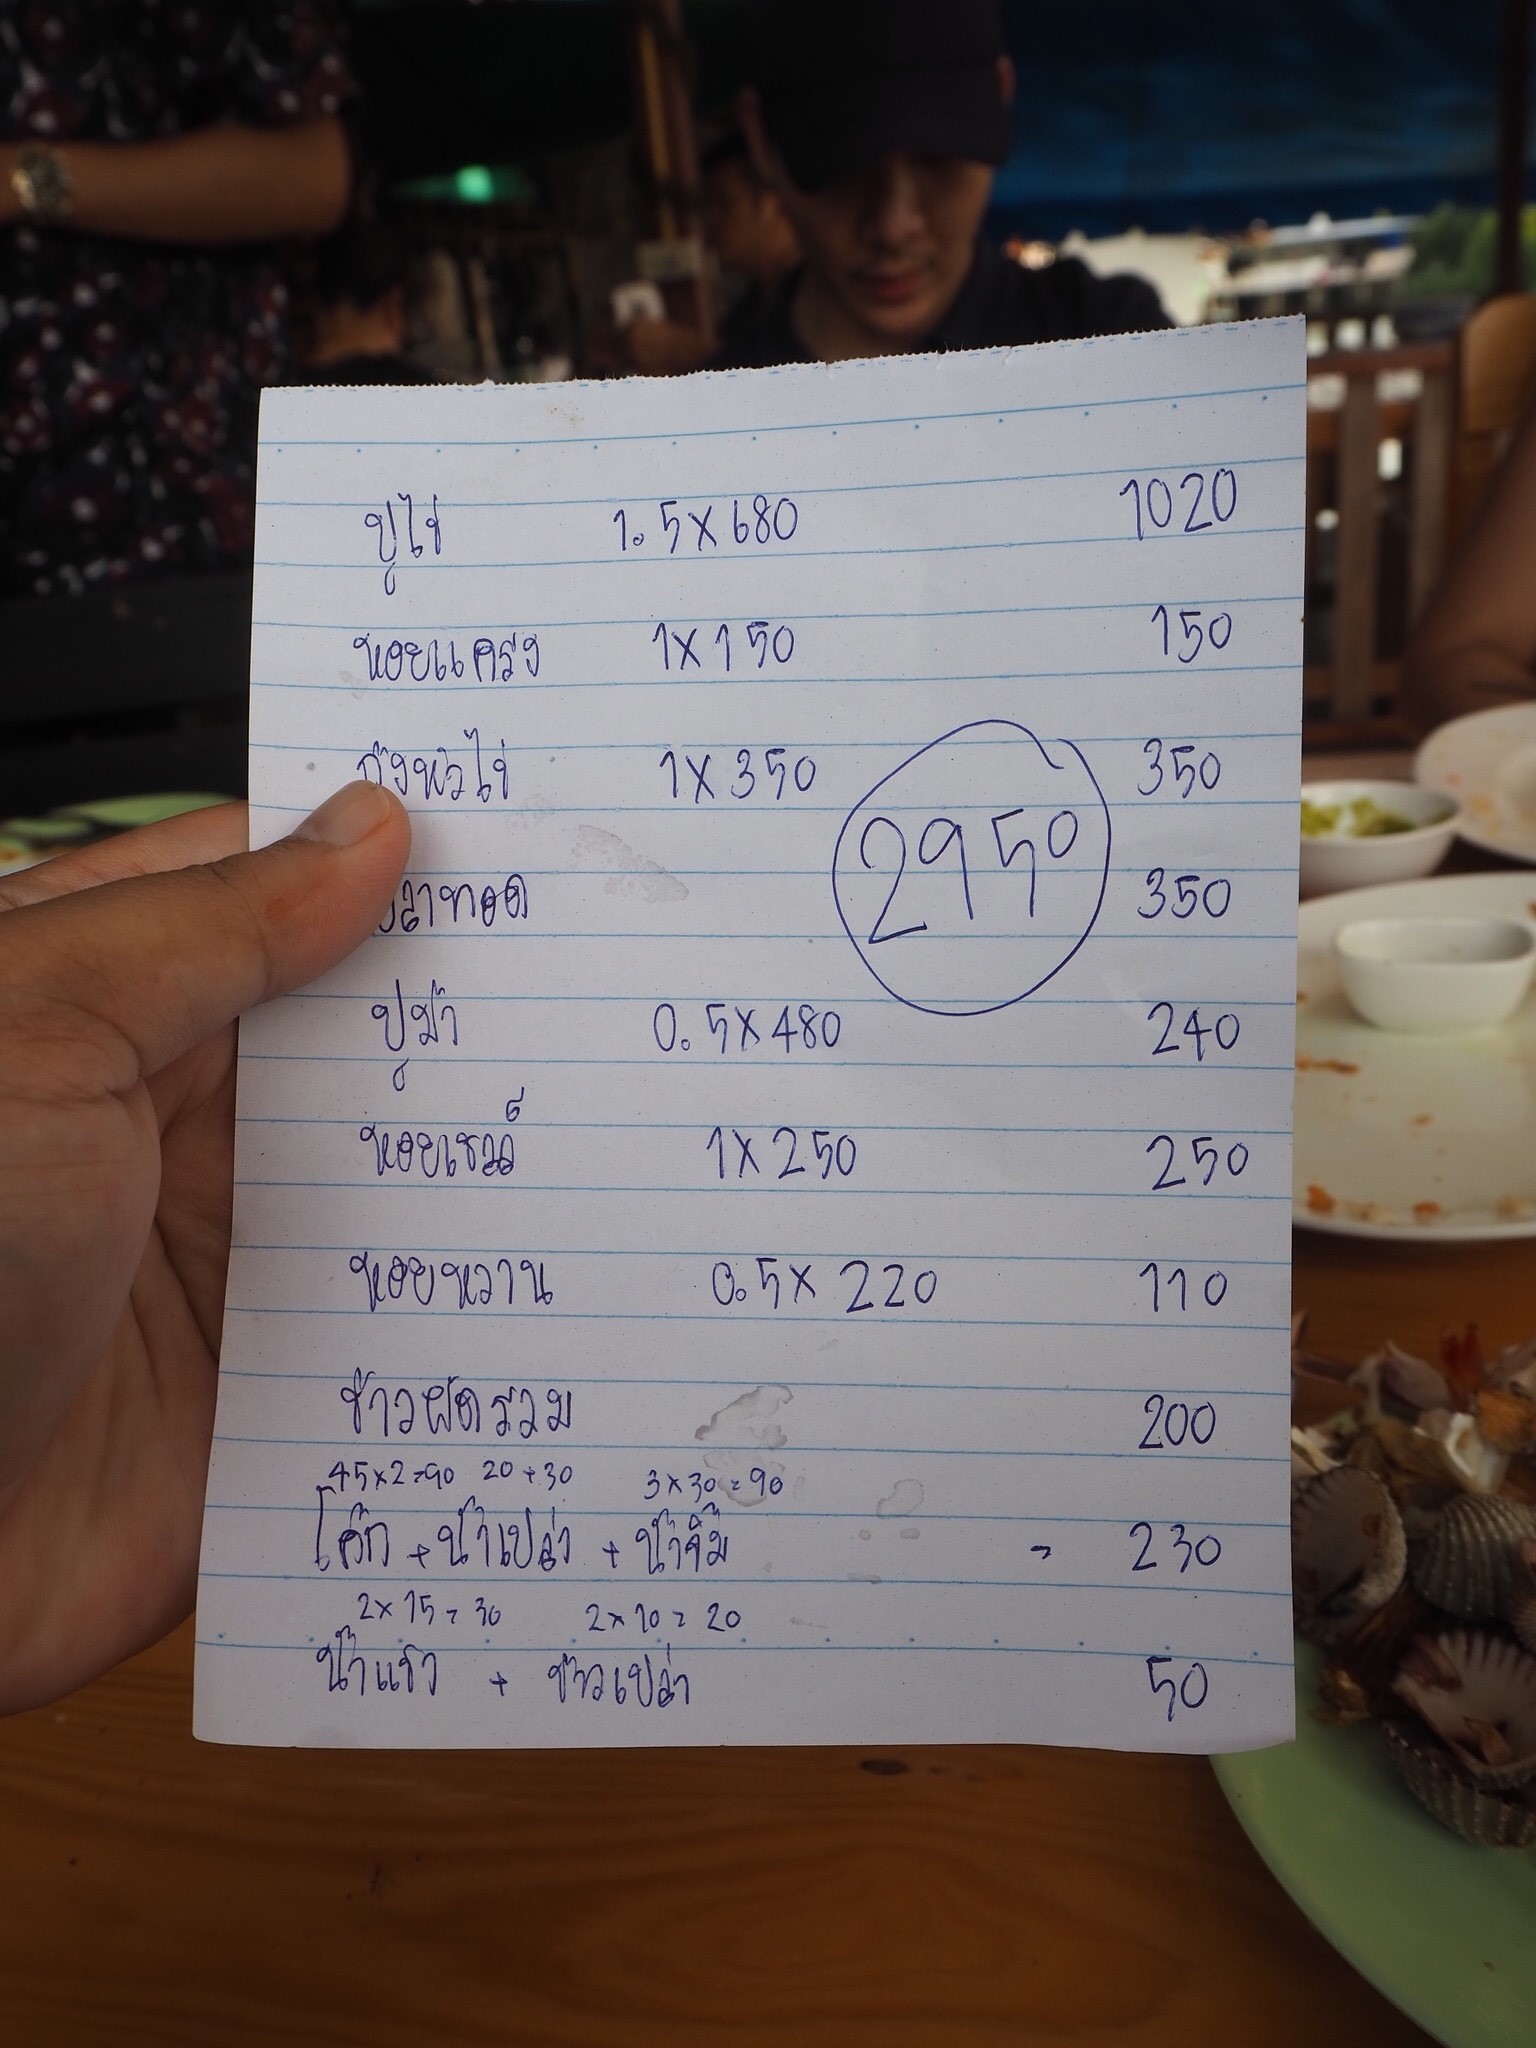 ปูไข่ 1.5x680 1020
หอยแครง 1x150 150
กุ้งหัวไข่ 1x350 350
2950
ปลาทอด 350
ปูม้า 0.5x480 240
หอยเชลล์ 1x250 250
หอยหวาน 0.5x220 110
ข้าวผัดรวม 200
45x2=90 20+30 3x30=90
โค๊ก + น้ำเปล่า + น้ำจิ้ม = 230
2x15=30 2x10=20
น้ำแข็ง + ข้าวเปล่า 50